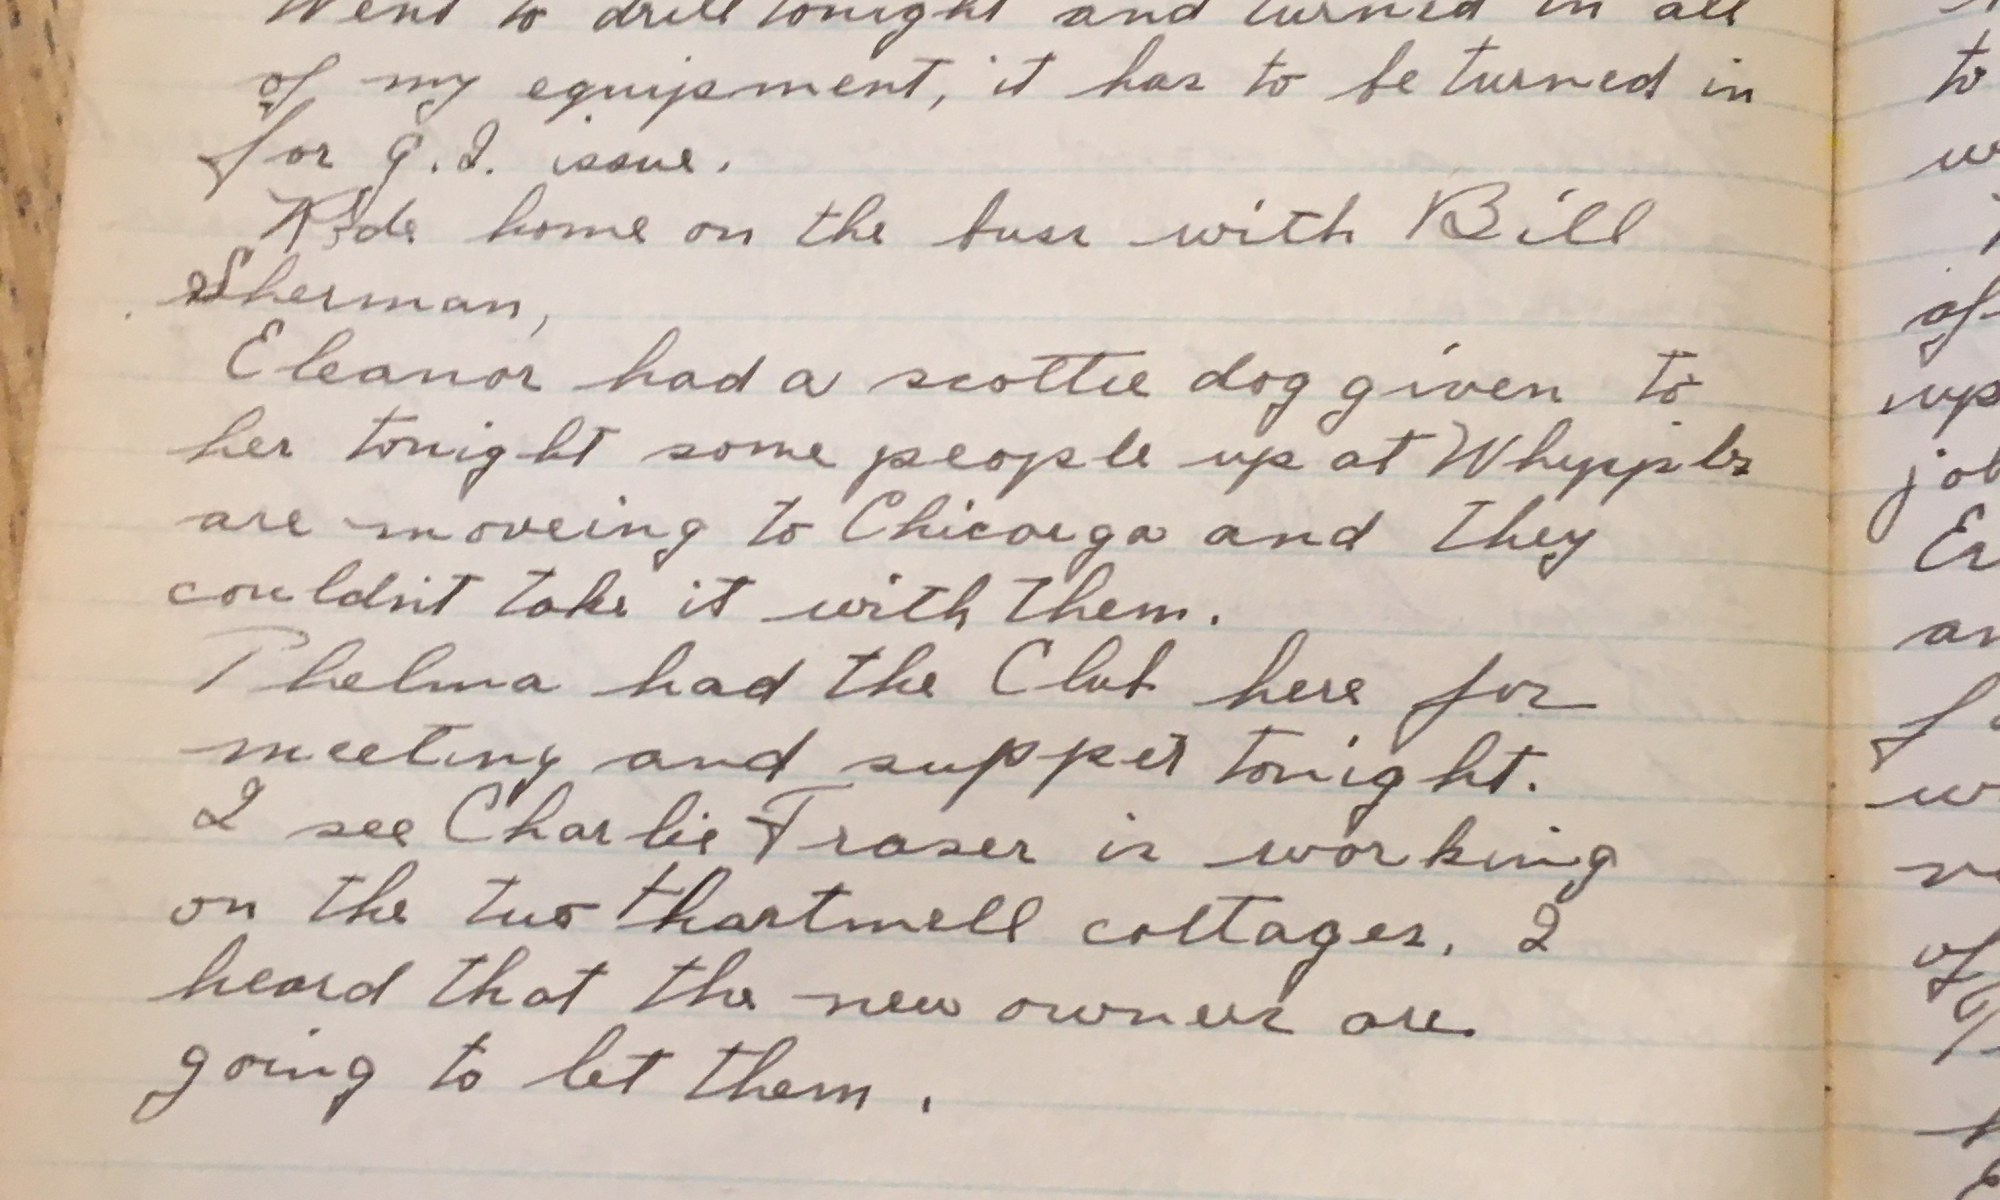 Went to drill tonight and turned in all
of my equipment, it has to be turned in
for G.I. issue.
Ride home on the buss with Bill
Sherman,
Eleanor had a scottie dog given to
her tonight some people up at Whypples
are moveing to Chicorga and they
couldn't take it with them.
Thelma had the Club here for
meeting and supper tonight.
I see Charlie Fraser is working
on the two thartmell cottages. I
heard that the new owners are
going to let them.
to
w
of
up
job
Er
an
f
w
of